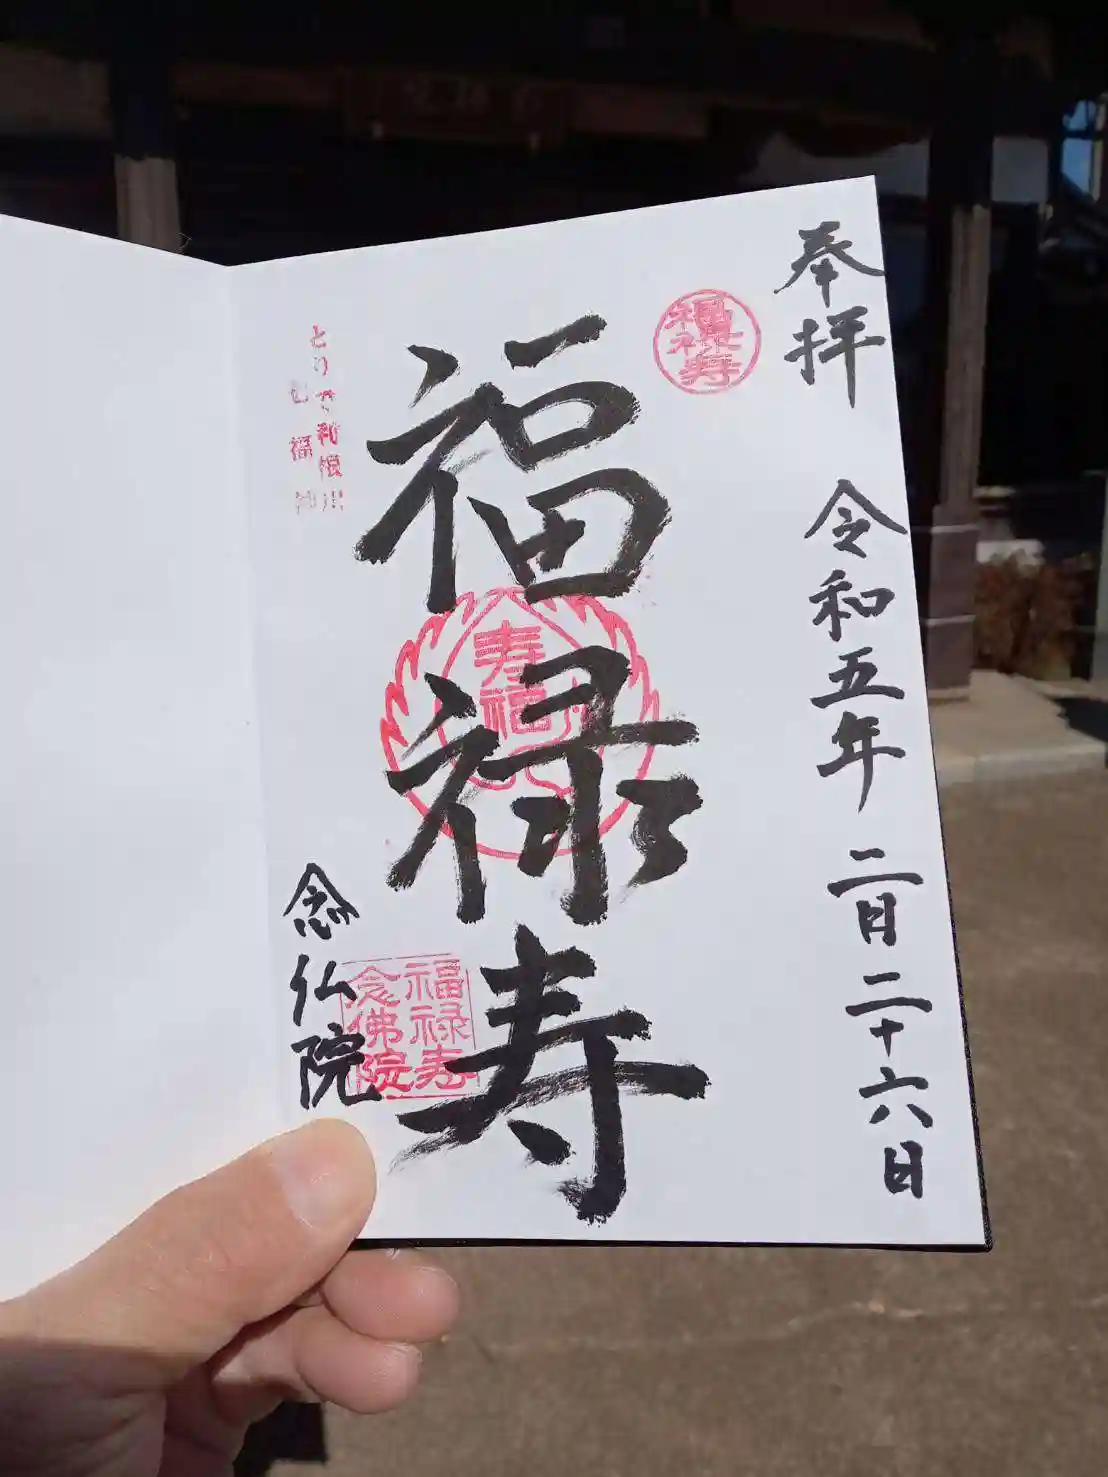 奉拝
令和五年二月二十六日
福禄寿
福禄寿
寿福
とりで利根川
七福神
福禄寿
念佛院
念仏院